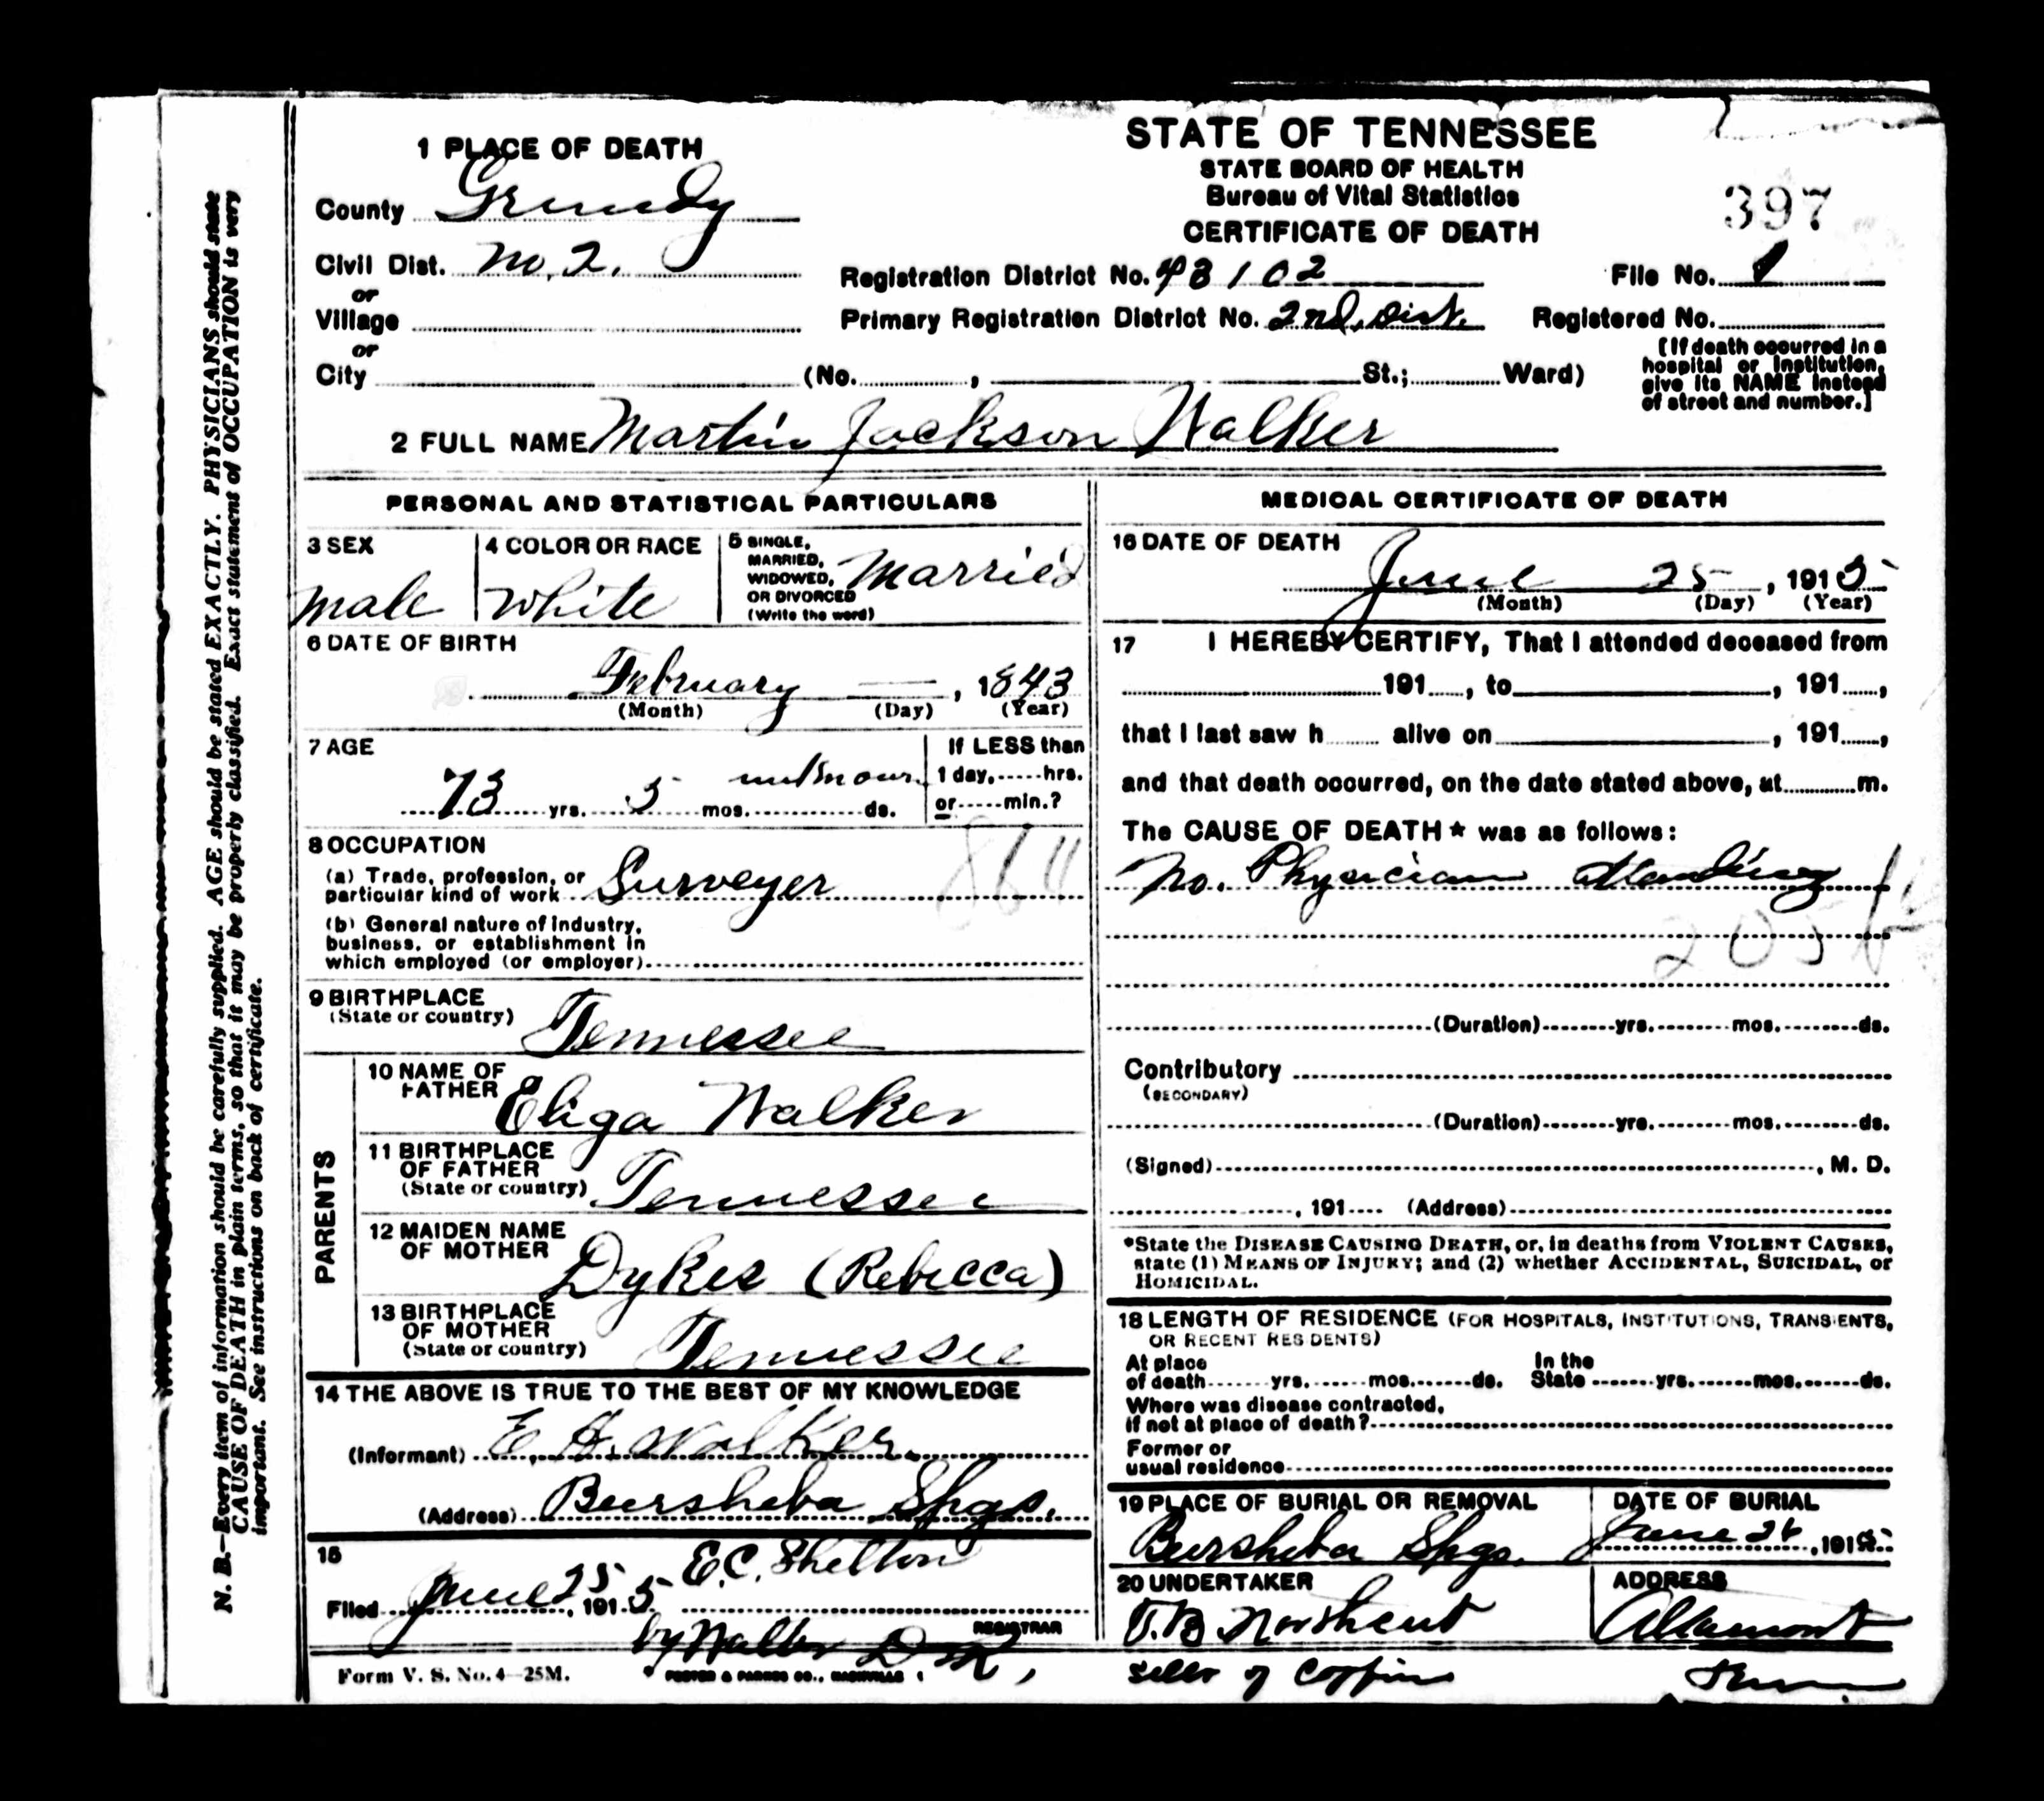 STATE OF TENNESSEE
STATE BOARD OF HEALTH
Bureau of Vital Statistics
CERTIFICATE OF DEATH
397
1 PLACE OF DEATH
County Grundy
Civil Dist. No. 2.
or
Village
or
City (No. , St.; Ward)
Registration District No. 48102
File No. 1
Primary Registration District No. 2nd, Dist.
Registered No.
[If death occurred in a
hospital or institution,
give its NAME instead
of street and number.]
2 FULL NAME Martin Jackson Walker
PERSONAL AND STATISTICAL PARTICULARS
3 SEX
male
4 COLOR OR RACE
White
5 SINGLE,
MARRIED,
WIDOWED,
OR DIVORCED
(Write the word)
Married
6 DATE OF BIRTH
February — , 1843
(Month) (Day) (Year)
7 AGE
73 yrs. 5 mos. unknown ds.
If LESS than
1 day, hrs.
or min.?
8 OCCUPATION
(a) Trade, profession, or
particular kind of work Surveyer
(b) General nature of industry,
business, or establishment in
which employed (or employer)
9 BIRTHPLACE
(State or country)
Tennessee
PARENTS
10 NAME OF
FATHER
Eliga Walker
11 BIRTHPLACE
OF FATHER
(State or country)
Tennessee
12 MAIDEN NAME
OF MOTHER
Dykes (Rebecca)
13 BIRTHPLACE
OF MOTHER
(State or country)
Tennessee
14 THE ABOVE IS TRUE TO THE BEST OF MY KNOWLEDGE
(Informant) E. H. Walker.
(Address) Beersheba Spgs.
15
Filed June 25, 1915 E.C. Shelton
REGISTRAR
by Walker
Form V. S. No. 4—25M.
FOSTER & PARKES CO., NASHVILLE
MEDICAL CERTIFICATE OF DEATH
16 DATE OF DEATH
June 25, 1915
(Month) (Day) (Year)
17 I HEREBY CERTIFY, That I attended deceased from
191 , to , 191 ,
that I last saw h alive on , 191 ,
and that death occurred, on the date stated above, at m.
The CAUSE OF DEATH* was as follows:
No. Physician attending
205
(Duration) yrs. mos. ds.
Contributory
(SECONDARY)
(Duration) yrs. mos. ds.
(Signed) , M. D.
, 191 (Address)
*State the DISEASE CAUSING DEATH, or, in deaths from VIOLENT CAUSES,
state (1) MEANS OF INJURY; and (2) whether ACCIDENTAL, SUICIDAL, or
HOMICIDAL.
18 LENGTH OF RESIDENCE (FOR HOSPITALS, INSTITUTIONS, TRANSIENTS,
OR RECENT RESIDENTS)
At place
of death yrs. mos. ds.
In the
State yrs. mos. ds.
Where was disease contracted,
if not at place of death?
Former or
usual residence
19 PLACE OF BURIAL OR REMOVAL
Beersheba Spgs.
DATE OF BURIAL
June 26, 1915
20 UNDERTAKER
Northcut
seller of Coffin
ADDRESS
Altamont
Tenn.
N. B.—Every item of information should be carefully supplied. AGE should be stated EXACTLY. PHYSICIANS should state
CAUSE OF DEATH in plain terms, so that it may be properly classified. Exact statement of OCCUPATION is very
important. See instructions on back of certificate.